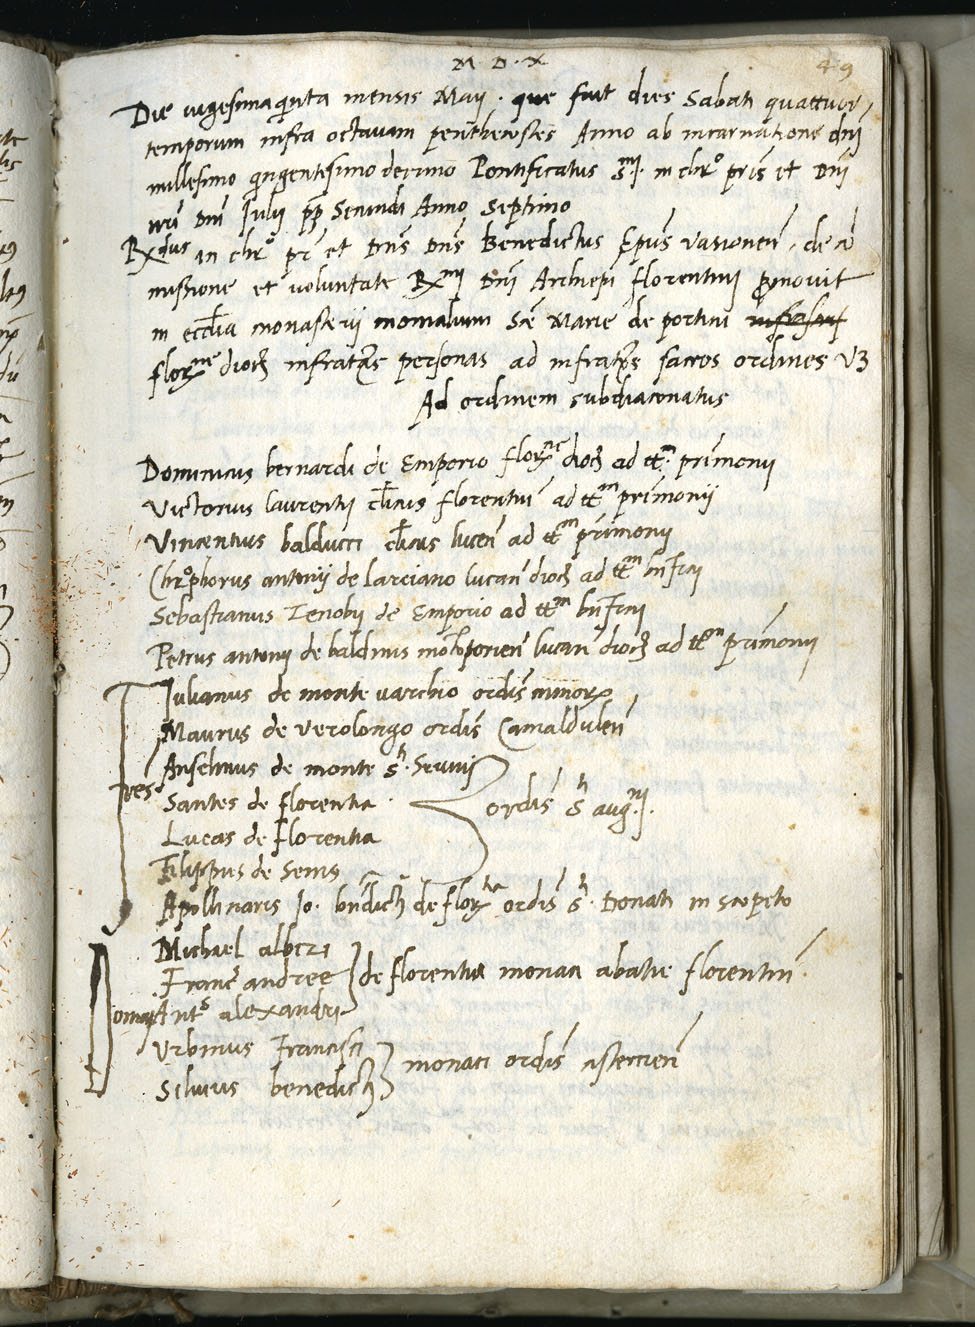 M · D · X
49
Die vigesimaqinta mensis Maij · que fuit dies Sabati quattuor
temporum infra octavam penthecostes Anno ab incarnatione dnī
millesimo qingentesimo decimo Pontificatus S.mi in chro pris et Dnī
nrī Dnī Julij pp Secundi Anno Septimo
Rx dus in chro pr et Dns Dns Benedictus Epus vasionen̄ · de cō
missione et voluntate Rx mi Dnī Archiepī florentini promovit
in ecclia monasterij monialium Sce Marie de portini
flor ne dioc infratas personas ad infratos sacros ordines vz
Ad ordinem subdiaconatus
Dominicus bernardi de Emporio flor ne dioc ad tt.m prīmonij
Victorius laurentij clicus florentin̄ ad tt m prīmonij
Vincentius balducci clicus lucen̄ ad tt m prīmonij
Chrophorus antonij de larciano lucan̄ dioc ad tt m bnficij
Sebastianus Zenobij de Emporio ad tt m bnficij
Petrus antonij de baldinis lucan̄ dioc ad tt m prīmonij
Julianus de monte varchio ordis minor
Maurus de verolongo ordis Camaldulen̄
Anselmus de monte S. Savinj
fres
Santes de florentia
ordis S aug.nj.
Lucas de florentia
Filippus de Senis
Apollinaris Jo. bndicti de flor tia ordis S. Donati in scopeto
Michael alberti
Franc andree de florentia monaci abatie florentin̄.
Domnj Ant s alexandri
Urbinus Francisci
monaci ordis cistercien̄
Silvius benedicti